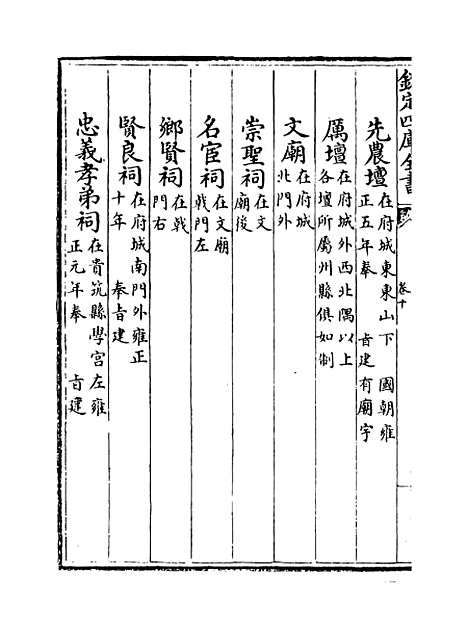 欽定四庫全書
卷十
先農壇在府城東東山下 國朝雍
正五年奉 㫖建有廟宇
厲壇在府城外西北隅以上
各壇所屬州縣俱如制
文廟在府城
北門外
崇聖祠在文
廟後
名宦祠在文廟
㦸門左
鄉賢祠在㦸
門右
賢良祠在府城南門外雍正
十年 奉㫖建
忠義孝弟祠在貴筑縣學宫左雍
正元年奉 㫖建